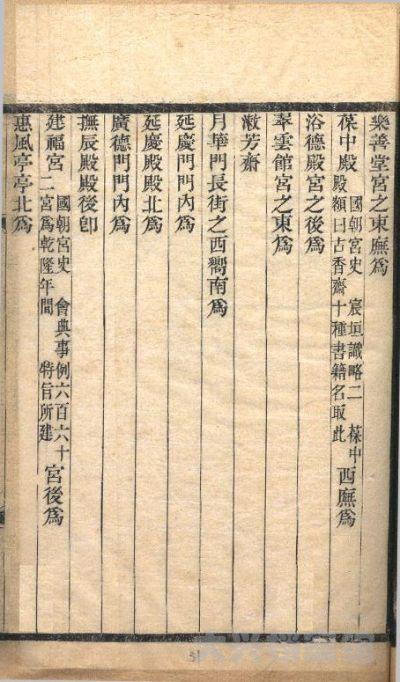 樂善堂宮之東廡爲
葆中殿 國朝宮史 宸垣識略二 葆中殿額曰古香齋十種書籍名取此 西廡爲
浴德殿宮之後爲
翠雲館宮之東爲
漱芳齋
月華門長街之西嚮南爲
延慶門門內爲
延慶殿殿北爲
廣德門門內爲
撫辰殿殿後卽
建福宮 國朝宮史 會典事例六百六十二宮爲乾隆年間 特旨所建 宮後爲
惠風亭亭北爲